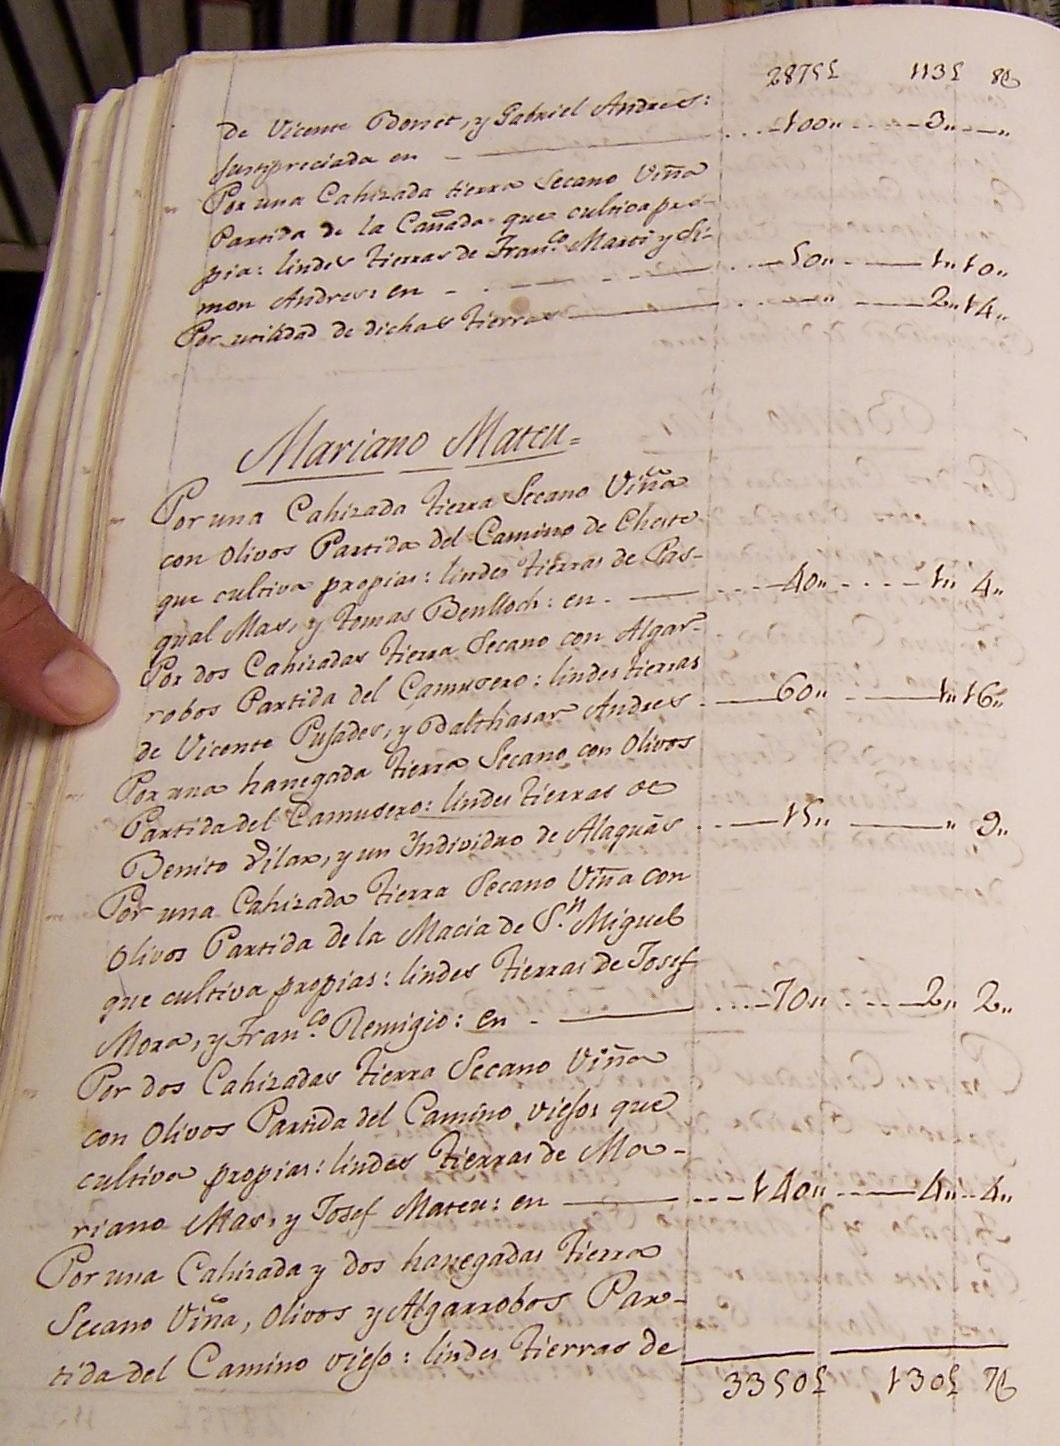 2875£ 113£ 8
de Vicente Bonet, y Gabriel Andres:
Justipreciada en — 100,, 3,, — ,,
Por una Cahizada tierra Secano Viña
Partida de la Cañada que cultiva pro-
pia: lindes tierras de Fran.co Marti y Si-
mon Andres: en — 50,, 1,, 10,,
Por utilidad de dichas tierras — ,, 2,, 14,,
Mariano Mateu =
Por una Cahizada tierra Secano Viña
con olivos Partida del Camino de Cheste
que cultiva propias: lindes tierras de Pas-
qual Mas, y tomas Benlloch: en — 40,, 1,, 4,,
Por dos Cahizadas tierra Secano con Algar-
robos Partida del Camusero: lindes tierras
de Vicente Pusades, y Balthasar Andres — 60,, 1,, 16,,
Por una hanegada tierra Secano con Olivos
Partida del Camusero: lindes tierras de
Benito Vilar, y un Individuo de Alaquás — 15,, — ,, 9,,
Por una Cahizada tierra Secano Viña con
Olivos Partida de la Macia de S.n Miguel
que cultiva propias: lindes tierras de Josef
Mora, y Fran.co Remigio: en — 70,, 2,, 2,,
Por dos Cahizadas tierra Secano Viña
con Olivos Partida del Camino viejo, que
cultiva propias: lindes tierras de Ma-
riano Mas, y Josef Mateu: en — 140,, 4,, 4,,
Por una Cahizada y dos hanegadas tierra
Secano Viña, Olivos y Algarrobos Par-
tida del Camino viejo: lindes tierras de
3350£ 130£ 7